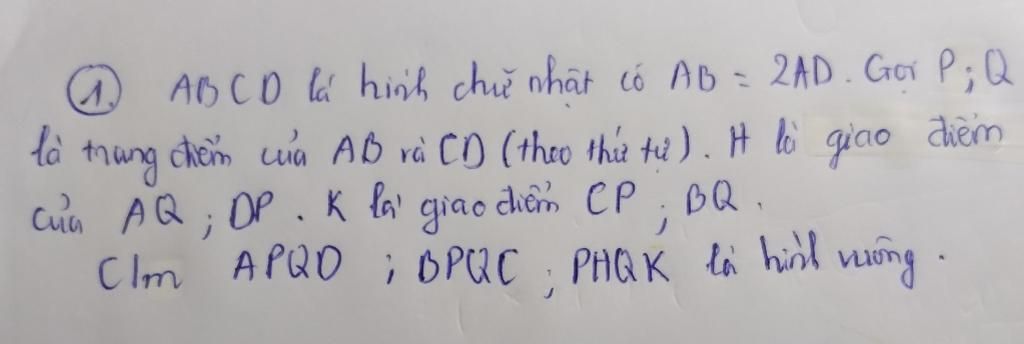 1. ABCD là hình chữ nhật có AB = 2AD. Gọi P; Q
là trung điểm của AB và CD (theo thứ tự). H là giao điểm
của AQ; DP. K là giao điểm CP; BQ.
C/m APQD; BPQC; PHQK là hình vuông.